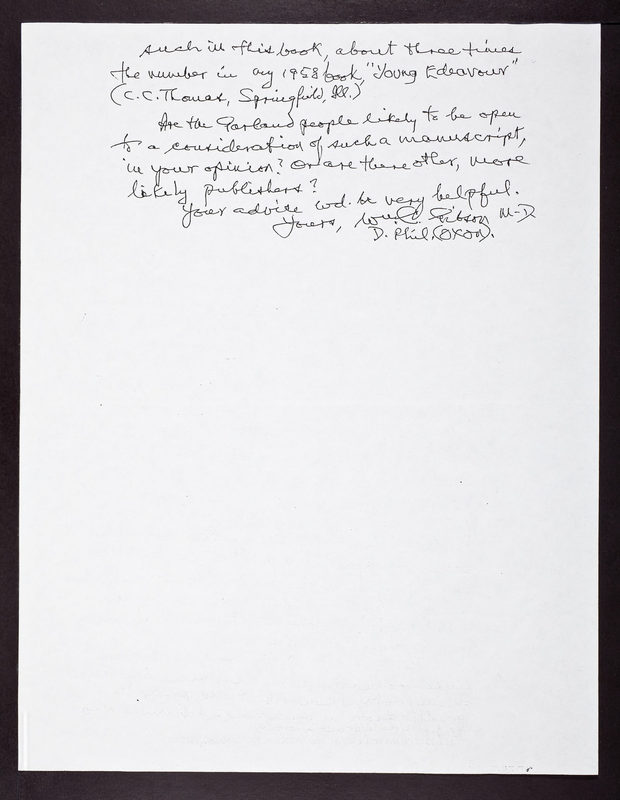 such in this book, about three times
the number in my 1958 book, "Young Endeavour"
(C.C. Thomas, Springfield, Ill.)
Are the Garland people likely to be open
to a consideration of such a manuscript,
in your opinion? Or are there other, more
likely publishers?
Your advice wd. be very helpful.
Yours, Wm. C. Gibson M-D.
D. Phil. (OXON).